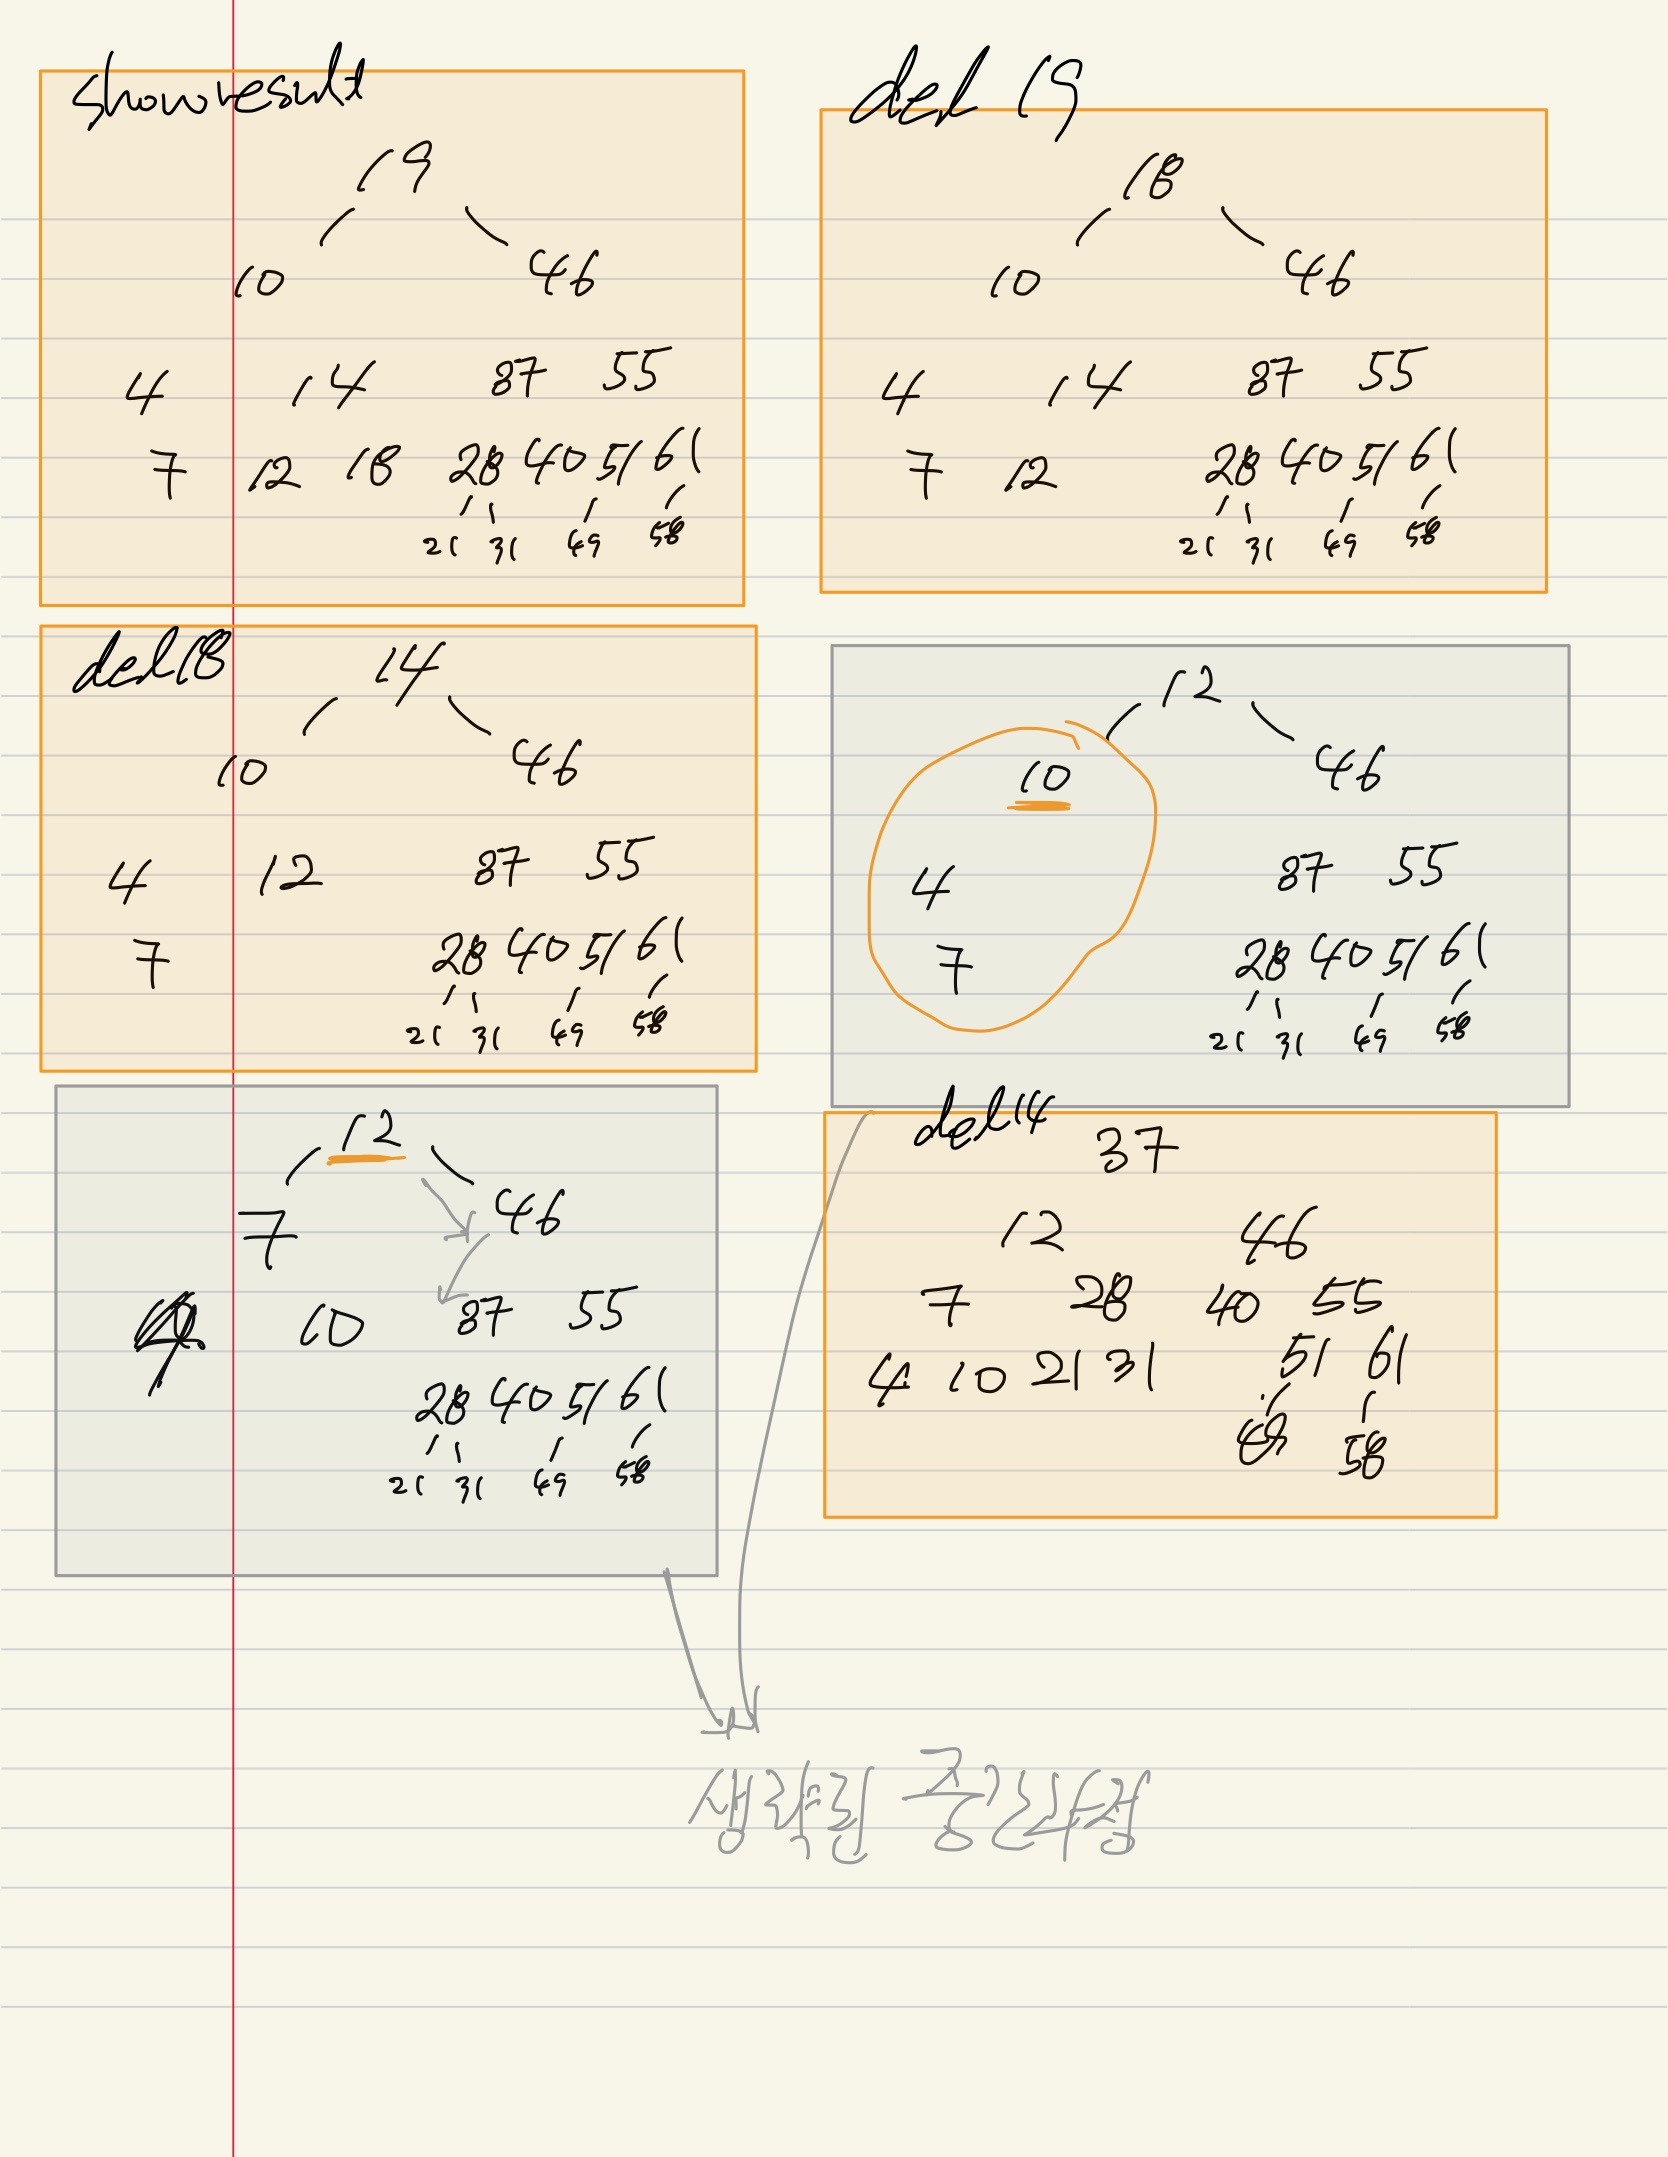 showresult
19
10 46
4 14 37 55
7 12 18 28 40 51 61
21 31 49 58
del 19
18
10 46
4 14 37 55
7 12 28 40 51 61
21 31 49 58
del 18
14
10 46
4 12 37 55
7 28 40 51 61
21 31 49 58
12
10 46
4 37 55
7 28 40 51 61
21 31 49 58
12
7 46
10 37 55
28 40 51 61
21 31 49 58
del 14
37
12 46
7 28 40 55
4 10 21 31 51 61
49 58
생략된 중간과정